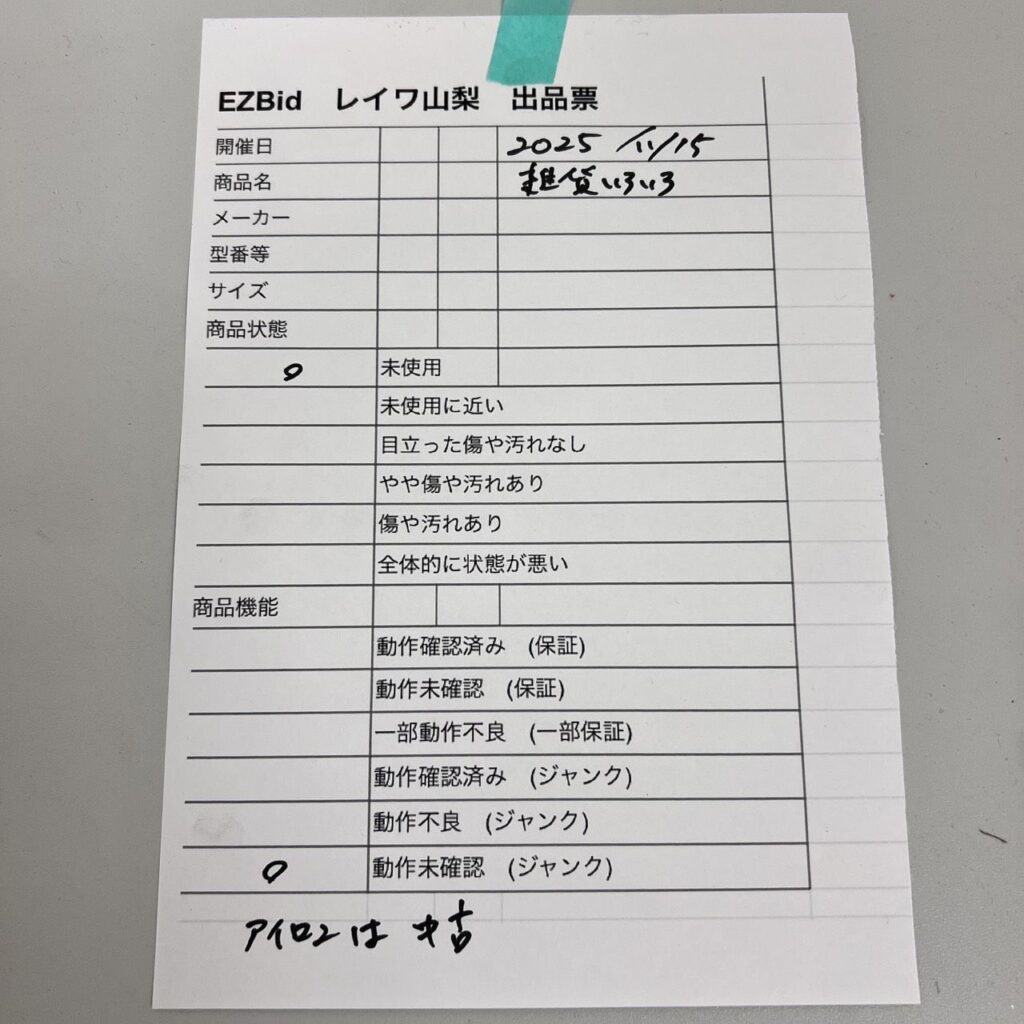 EZBid レイワ山梨 出品票
開催日 2025 11/15
商品名 雑貨いろいろ
メーカー
型番等
サイズ
商品状態
未使用
未使用に近い
目立った傷や汚れなし
やや傷や汚れあり
傷や汚れあり
全体的に状態が悪い
商品機能
動作確認済み (保証)
動作未確認 (保証)
一部動作不良 (一部保証)
動作確認済み (ジャンク)
動作不良 (ジャンク)
動作未確認 (ジャンク)
アイロンは 中古